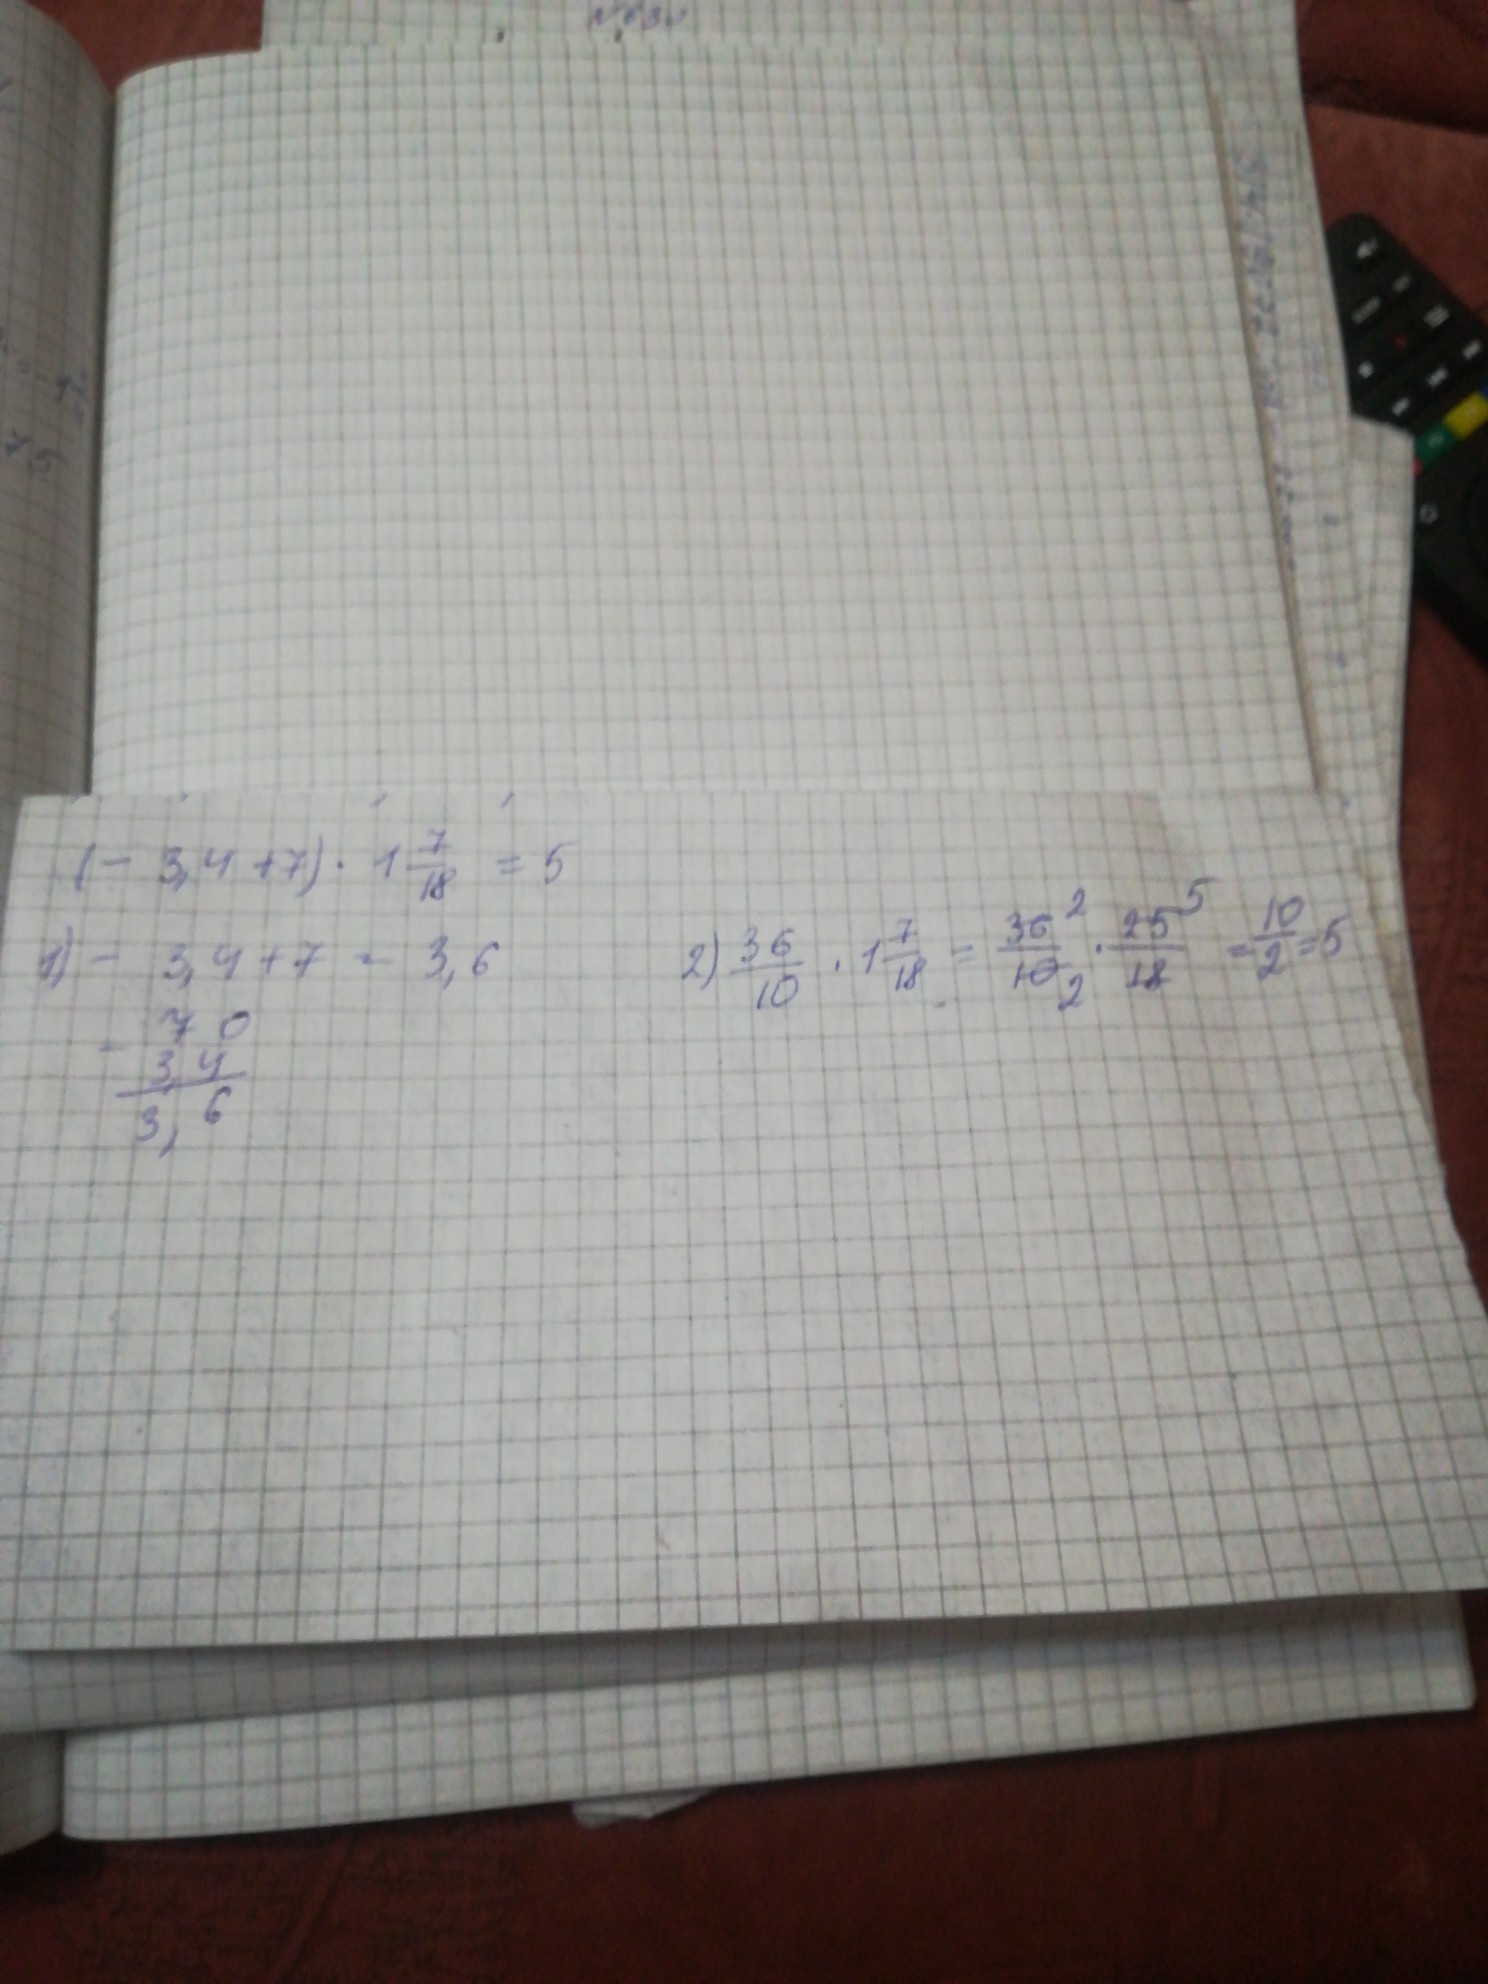 (- 3,4 +7) · 1 7/18 = 5
1) - 3,4 + 7 = 3,6
- 7 0
3,4
3, 6
2) 36/10 · 1 7/18 = 36²/10₂ · 25⁵/18 = 10/2 = 5
7,5